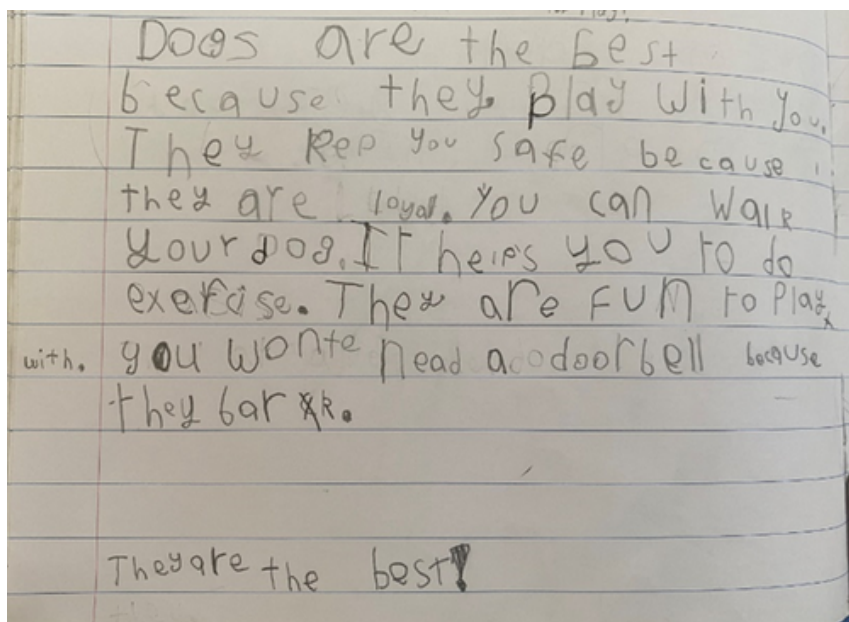 Dogs are the best
because they play with you.
They kep you safe because
they are loyal. You can walk
your dog. It helps you to do
exercise. They are FUN to Play
with. you wonte nead a doorbell because
they bark.
They are the best!